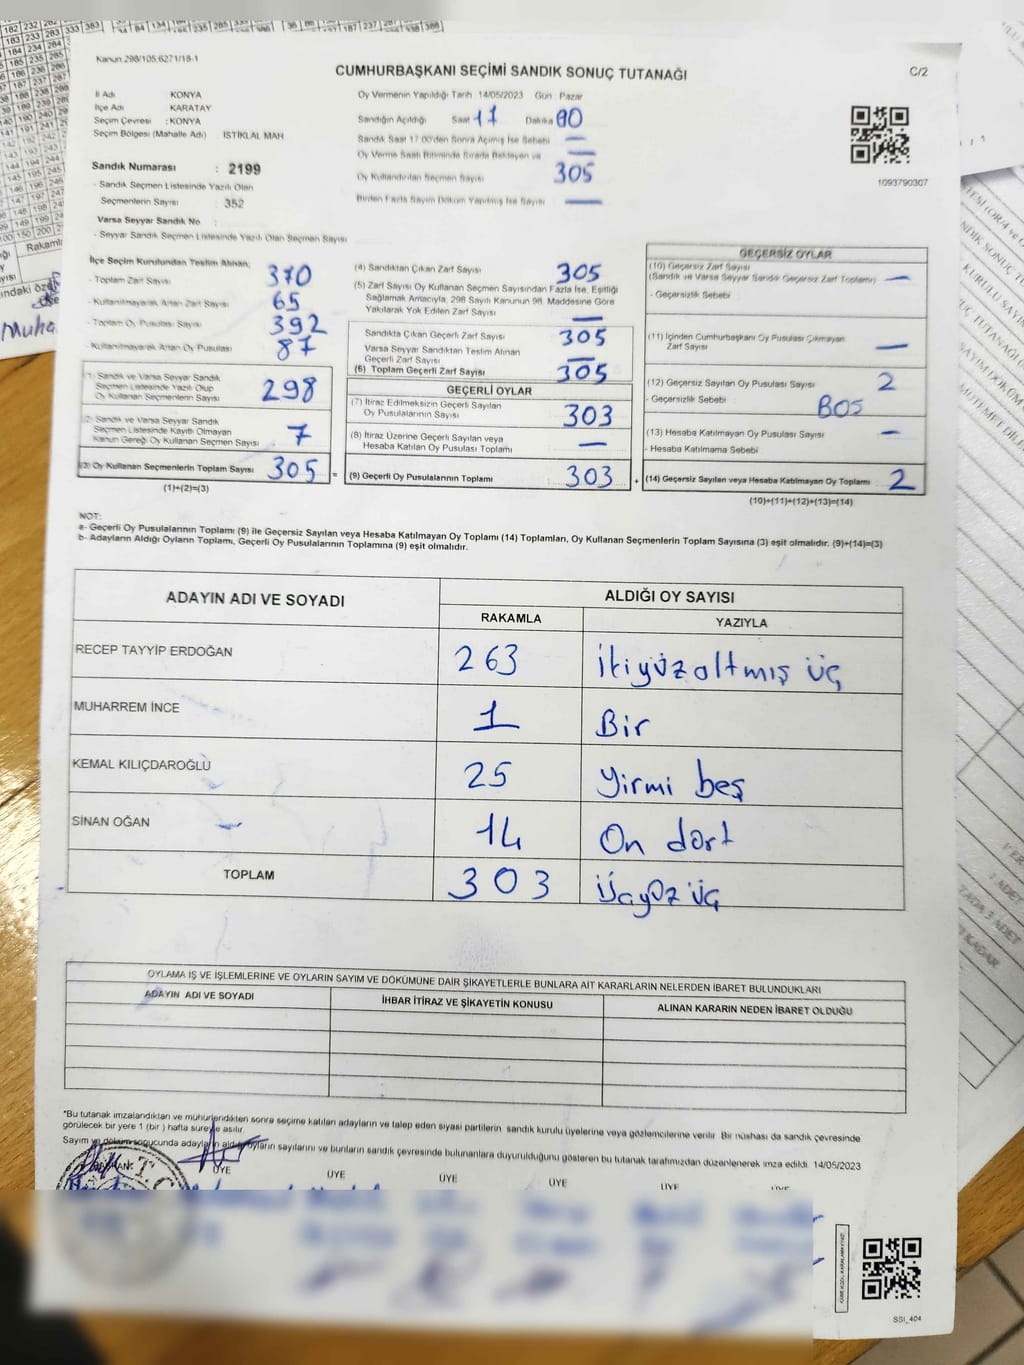 Kanun:298/105,6271/18-1
CUMHURBAŞKANI SEÇİMİ SANDIK SONUÇ TUTANAĞI
C/2
İl Adı KONYA
İlçe Adı KARATAY
Seçim Çevresi : KONYA
Seçim Bölgesi (Mahalle Adı) İSTİKLAL MAH
Sandık Numarası : 2199
- Sandık Seçmen Listesinde Yazılı Olan
Seçmenlerin Sayısı : 352
Varsa Seyyar Sandık No :
- Seyyar Sandık Seçmen Listesinde Yazılı Olan Seçmen Sayısı
Oy Vermenin Yapıldığı Tarih 14/05/2023 Gün : Pazar
Sandığın Açıldığı Saat 17 Dakika 00
Sandık Saat 17.00'den Sonra Açılmış İse Sebebi —
Oy Verme Saati Bitiminde Sırada Bekleyen ve
Oy Kullandırılan Seçmen Sayısı 305
Birden Fazla Sayım Döküm Yapılmış İse Sayısı —
1093790307
İlçe Seçim Kurulundan Teslim Alınan;
- Toplam Zarf Sayısı 370
- Kullanılmayarak Artan Zarf Sayısı 65
- Toplam Oy Pusulası Sayısı 392
- Kullanılmayarak Artan Oy Pusulası 87
(1) Sandık ve Varsa Seyyar Sandık
Seçmen Listesinde Yazılı Olup
Oy Kullanan Seçmenlerin Sayısı 298
(2) Sandık ve Varsa Seyyar Sandık
Seçmen Listesinde Kayıtlı Olmayan
Kanun Gereği Oy Kullanan Seçmen Sayısı 7
(3) Oy Kullanan Seçmenlerin Toplam Sayısı 305 =
(1)+(2)=(3)
(4) Sandıktan Çıkan Zarf Sayısı 305
(5) Zarf Sayısı Oy Kullanan Seçmen Sayısından Fazla İse, Eşitliği
Sağlamak Amacıyla, 298 Sayılı Kanunun 98. Maddesine Göre
Yakılarak Yok Edilen Zarf Sayısı —
Sandıkta Çıkan Geçerli Zarf Sayısı 305
Varsa Seyyar Sandıktan Teslim Alınan
Geçerli Zarf Sayısı —
(6) Toplam Geçerli Zarf Sayısı 305
GEÇERLİ OYLAR
(7) İtiraz Edilmeksizin Geçerli Sayılan
Oy Pusulalarının Sayısı 303
(8) İtiraz Üzerine Geçerli Sayılan veya
Hesaba Katılan Oy Pusulası Toplamı —
(9) Geçerli Oy Pusulalarının Toplamı 303 +
GEÇERSİZ OYLAR
(10) Geçersiz Zarf Sayısı
(Sandık ve Varsa Seyyar Sandık Geçersiz Zarf Toplamı) —
- Geçersizlik Sebebi
(11) İçinden Cumhurbaşkanı Oy Pusulası Çıkmayan
Zarf Sayısı —
(12) Geçersiz Sayılan Oy Pusulası Sayısı 2
- Geçersizlik Sebebi BOŞ
(13) Hesaba Katılmayan Oy Pusulası Sayısı —
- Hesaba Katılmama Sebebi
(14) Geçersiz Sayılan veya Hesaba Katılmayan Oy Toplamı 2
(10)+(11)+(12)+(13)=(14)
NOT:
a- Geçerli Oy Pusulalarının Toplamı (9) ile Geçersiz Sayılan veya Hesaba Katılmayan Oy Toplamı (14) Toplamları, Oy Kullanan Seçmenlerin Toplam Sayısına (3) eşit olmalıdır. (9)+(14)=(3)
b- Adayların Aldığı Oyların Toplamı, Geçerli Oy Pusulalarının Toplamına (9) eşit olmalıdır.
ADAYIN ADI VE SOYADI ALDIĞI OY SAYISI
RAKAMLA YAZIYLA
RECEP TAYYİP ERDOĞAN 263 İkiyüzaltmış üç
MUHARREM İNCE 1 Bir
KEMAL KILIÇDAROĞLU 25 Yirmi beş
SİNAN OĞAN 14 On dört
TOPLAM 303 Üçyüz üç
OYLAMA İŞ VE İŞLEMLERİNE VE OYLARIN SAYIM VE DÖKÜMÜNE DAİR ŞİKAYETLERLE BUNLARA AİT KARARLARIN NELERDEN İBARET BULUNDUKLARI
ADAYIN ADI VE SOYADI İHBAR İTİRAZ VE ŞİKAYETİN KONUSU ALINAN KARARIN NEDEN İBARET OLDUĞU
*Bu tutanak imzalandıktan ve mühürlendikten sonra seçime katılan adayların ve talep eden siyasi partilerin sandık kurulu üyelerine veya gözlemcilerine verilir. Bir nüshası da sandık çevresinde
görülecek bir yere 1 (bir ) hafta süreyle asılır.
Sayım ve döküm sonucunda adayların aldığı oyların sayılarını ve bunların sandık çevresinde bulunanlara duyurulduğunu gösteren bu tutanak tarafımızdan düzenlenerek imza edildi. 14/05/2023
BAŞKAN ÜYE ÜYE ÜYE ÜYE ÜYE
SSI_404